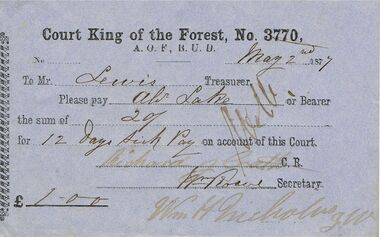 Court King of the Forest, No. 3770,
A. O. F., B. U. D.
No May 2nd 1877
To Mr. Lewis Treasurer.
Please pay Lake or Bearer
the sum of 20/
for 12 Days Sick Pay on account of this Court.
C. R.
Wm Secretary.
£ 1-0-0 Wm H Nicholas